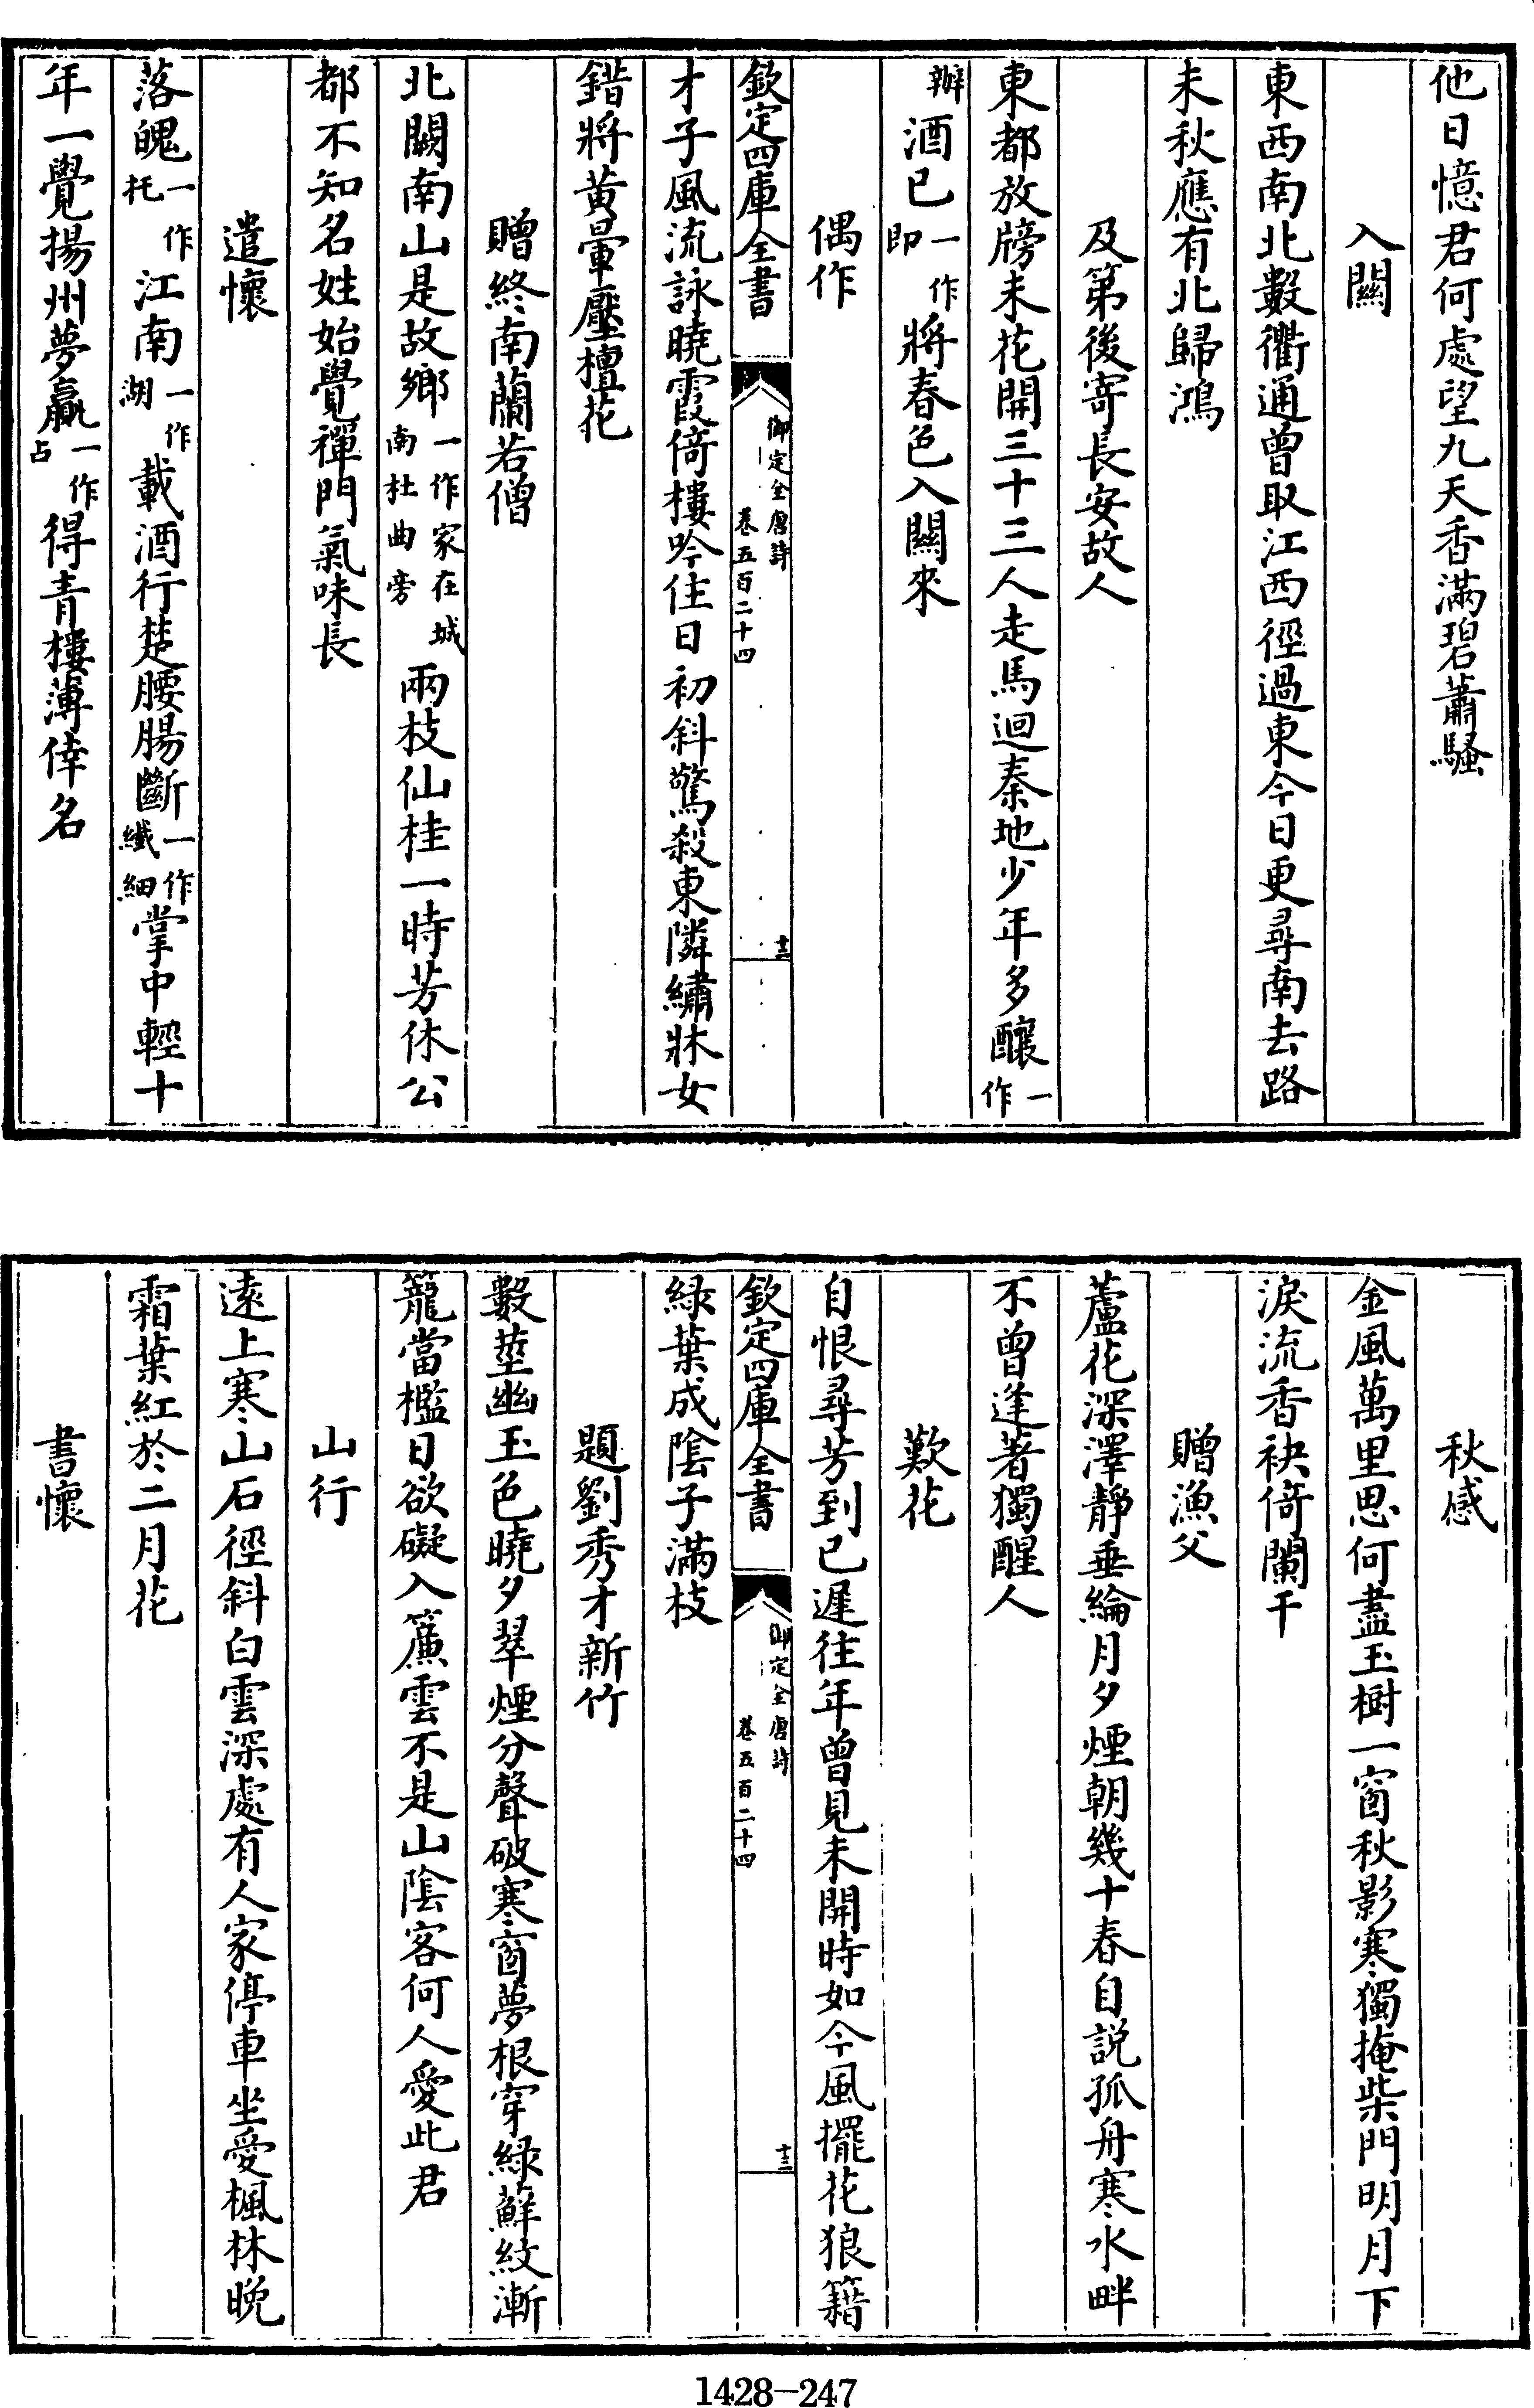 他日憶君何處望九天香滿碧蕭騷
入關
東西南北數衢通曾取江西徑過東今日更尋南去路
未秋應有北歸鴻
及第後寄長安故人
東都放牓未花開三十三人走馬迴秦地少年多釀一作
辦酒已一作即將春色入關來
偶作
欽定四庫全書
御定全唐詩
卷五百二十四
十二
才子風流詠曉霞倚樓吟住日初斜驚殺東隣繡牀女
錯將黄暈壓檀花
贈終南蘭若僧
北闕南山是故鄉一作家在城南杜曲旁兩枝仙桂一時芳休公
都不知名姓始覺禪門氣味長
遣懷
落魄一作托江南一作湖載酒行楚腰腸斷一作纖細掌中輕十
年一覺揚州夢贏一作占得青樓薄倖名
秋感
金風萬里思何盡玉樹一窗秋影寒獨掩柴門明月下
淚流香袂倚闌干
贈漁父
蘆花深澤靜垂綸月夕煙朝幾十春自説孤舟寒水畔
不曾逢著獨醒人
歎花
自恨尋芳到已遲往年曾見未開時如今風擺花狼籍
欽定四庫全書
御定全唐詩
卷五百二十四
十三
綠葉成陰子滿枝
題劉秀才新竹
數莖幽玉色曉夕翠煙分聲破寒窗夢根穿綠蘚紋漸
籠當檻日欲礙入簾雲不是山陰客何人愛此君
山行
遠上寒山石徑斜白雲深處有人家停車坐愛楓林晚
霜葉紅於二月花
書懷
1428-247